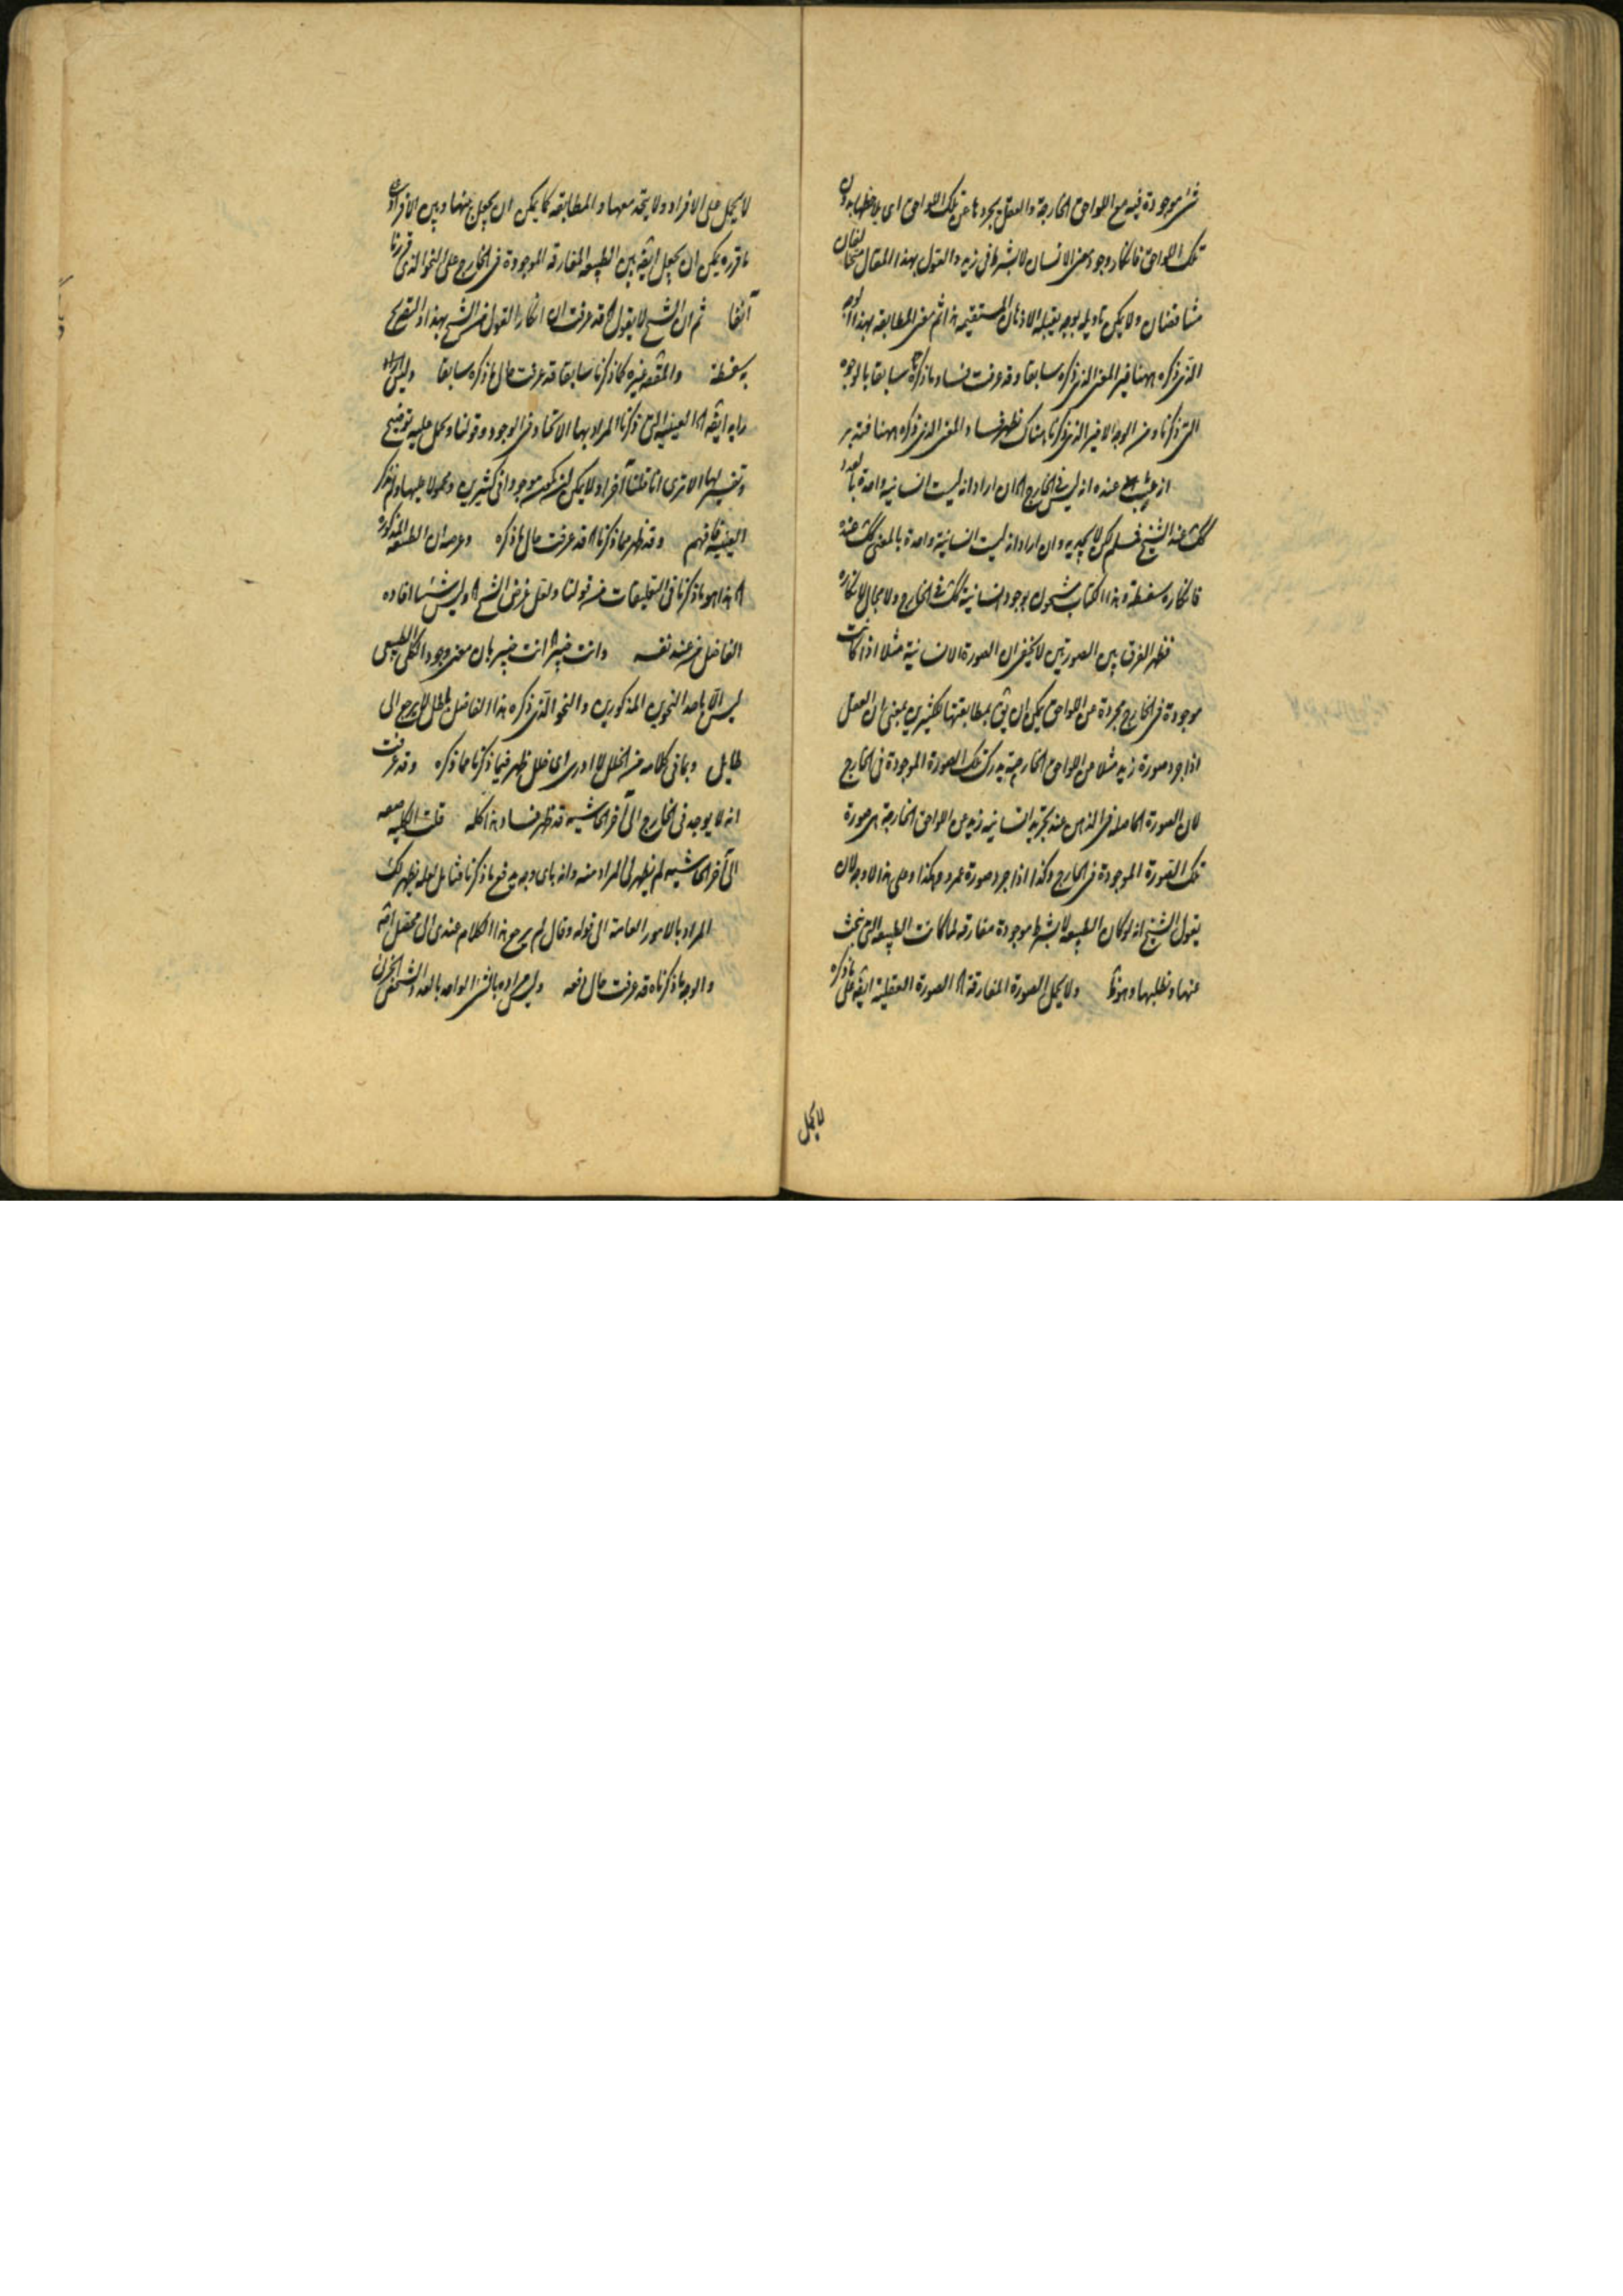 شئ موجودة فيه مع اللواحق الخارجة والعقل يجردها عن تلك اللواحق اى يلاحظها بدون
تلك اللواحق فانكار وجود معنى الانسان لا بشرط فى زيد والقول بهذا المقال
متناقضان ولا يمكن تاويله بوجه يقبله الاذهان المستقيمة هذا ثم معنى المطابقة بهذا
الذى ذكره ههنا غير المعنى الذى ذكره سابقا وقد عرفت فساد ما ذكره سابقا بالوجوه
التى ذكرنا ومن الوجه الاخير الذى ذكرنا هناك ظهر فساد المعنى الذى ذكره ههنا فتدبر
عنده انه ليس فى الخارج ان اراد انه ليست انسانية واحدة بالعدد
كك عند الشيخ فمسلم لكن لا يجديه وان اراد انه ليست انسانية واحدة بالمعنى كك عنده
فانكاره سفسطة وهذا الكتاب مشحون بوجود انسانية كك فى الخارج ولا مجال لانكاره
فظهر الفرق بين الصورتين لا يخفى ان الصورة الانسانية مثلا اذا كانت
موجودة فى الخارج مجردة عن اللواحق يمكن ان يق بمطابقتها لكثيرين بمعنى ان العقل
اذا جرد صورة زيد مثلا عن اللواحق الخارجية يدرك تلك الصورة الموجودة فى الخارج
لان الصورة الحاصلة فى الذهن عند تجريد انسانية زيد عن اللواحق الخارجة هى صورة
تلك الصورة الموجودة فى الخارج وكذا اذا جرد صورة عمرو وهكذا وعلى هذا لا وجه لان
يقول الشيخ انه لو كان الطبيعة لا بشرط موجودة مفارقة لما كانت الطبيعة التى نبحث
عنها ونطلبها وهو ظ ولا يحمل الصورة المفارقة الصورة العقلية ايضا على ما ذكره
لا يحمل
لا يحمل على الافراد ولا يتحد معها والمطابقة كما يمكن ان يجعل بينها وبين الافراد
ما قرره يمكن ان يجعل ايضا بين الطبيعة المفارقة الموجودة فى الخارج على النحو الذى قررنا
آنفا ثم ان الشيخ لا يقول قد عرفت ان انكار القول من الشيخ بهذا والتصريح
به سفسطة كما ذكرنا سابقا قد عرفت حال ما ذكره سابقا وليس
رايه ايضا العينية التى ذكرنا المراد بها الاتحاد فى الوجود وقولنا ويحمل عليه توضيح
وتفسير لها الا ترى انا قلنا آخرا ولا يمكن ان يكون موجودا فى كثيرين ومحمولا عليها ولم نذكر
العينية فافهم وقد ظهر مما ذكرنا قد عرفت حال ما ذكره وعرضه ان الطبيعة المذكورة
هذا هو ما ذكرنا فى التعليقات من قولنا ولعل غرض الشيخ وليس شيئا افاده
الفاضل من عند نفسه وانت خبير انت خبير بان معنى وجود الكلى الطبيعى
ليس الا باحد النحوين المذكورين والنحو الذى ذكره هذا الفاضل باطل لا يرجع الى
طايل وبما فى كلامه من الخلل لا ادرى اى خلل ظهر فيما ذكرنا مما ذكره وقد عرفت
انه لا يوجد فى الخارج الى آخر الحاشية قد ظهر فساد هذا كله قلت الكلية صفة
الى آخر الحاشية لم يظهر لى المراد منه وانه باى وجه يدفع ما ذكرنا فتامل لعله يظهر لك
المراد بالامور العامة الى قوله وقال لم يرجع هذا الكلام عندى الى محصل
والوجه ما ذكرناه قد عرفت حال دفعه وليس مراده بالشئ الواحد بالعدد الشخص